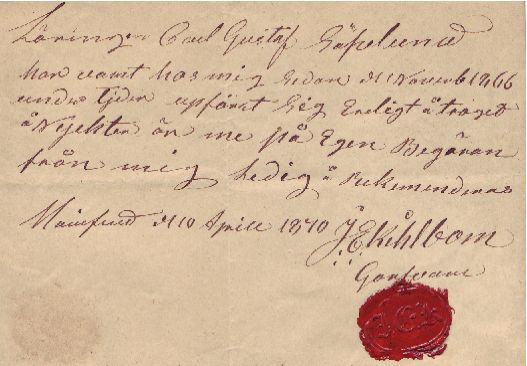 Läringen Carl Gustaf Göpelund
har varit hos mig sedan d 1 Novemb 1866
under tiden upfört sig Erligt å troget
å Nyckter än me på Egen Begäran
från mig Ledig å Rekomenderas
d 10 Aprill 1870 J E Kihlbom
Garfvare